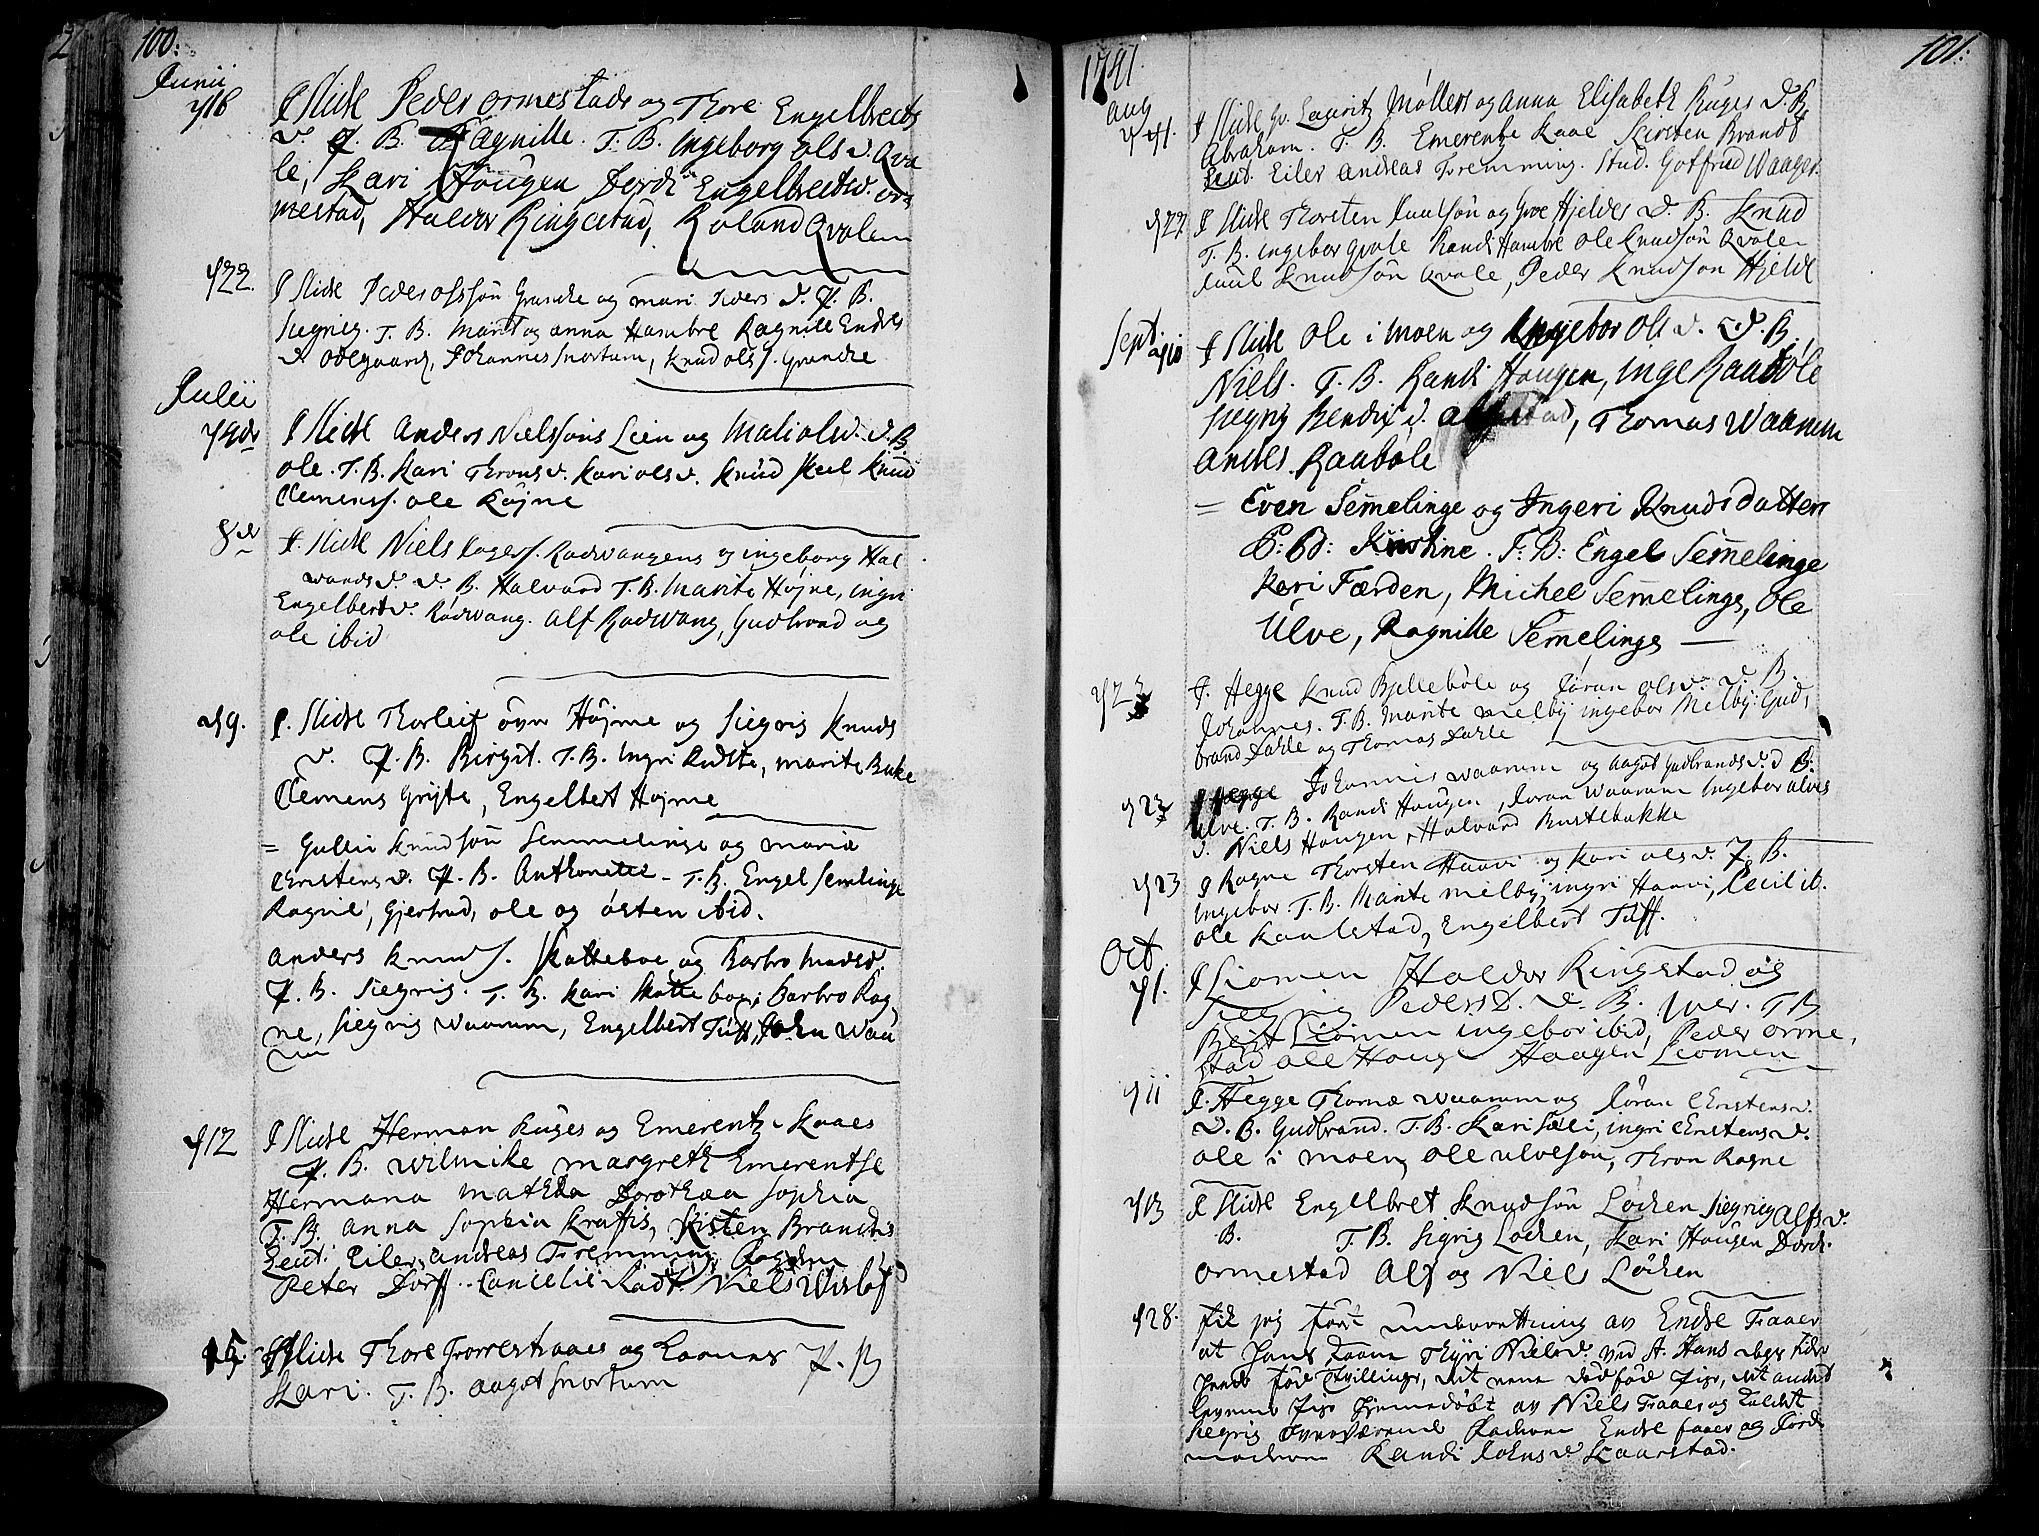 100:
Junii
d 16 J Slidr Peder ormestads og Thore Engelbrects
d. P. B. Ragnille. T. B. Ingeborg ols d. Qva
le, Kari Hougen Jordi Engelbrectsd. or¬
mestad, Haldor Ringestad, Roland Qvalem
d 22. J Slidr Peder olssøn Grandhe og mari Peders d. P. B.
Siegrig. T. B. Marit og anna Hambre Ragnill Endres
d. odegaard, Johannes Snortum, Knud ols s. Grandhe
Julii
d 4de J Slidr Anders Nielssøns Lein og Mali ols d. d. B.
ole. T. B. Kari Throns d. Kari ols d. Knud Skeel Knud
Clemens s. ole Røjne
8de J. Slidr Niels Rogers. Rødvangens og ingeborg Hal
wards d. d. B. Halvard T. B. Marite Højne, ingri
Engelbert d. Rødwang. Alf Rødwang, Gudbrand og
ole ibid
d 9. J. Slidr Thorleif øvr Højme og Siegris Knuds
d. P. B. Birgit. T. B. Ingri Rudste, marite Bakke
Clemens Grifte, Engelbert Højme
= Gullei Knudsøn Semmelinge og maria
Christens d. P. B. Anthonette - T. B. Engel Semlinge
Ragnil, Gjertrud, ole og østen ibid.
Anders Knuds. Skatteboe og Barbro Madsd.
P. B. Siegris. T. B. Kari Skattebøe, Barbro Rog
ne, Siegris Waarum, Engelbert Tuff, John Waa
rum
d 12 J Slidr Herman Ruges og Emerentz Kaaes
P. B. Wilmike Margrethe Emerentse
Hermana Mathea Dorothæa Sophia
T. B. Anna Sophia Kraftis, Kisten Brandts
Leut: Eiler Andreas Fremming
Peter Dorff. Cancelie Raat Niels Wisløf
15 J Slidr Thore Forrestraaes og Ragnes P. B
Kari. T. B. aagot Snortum
1791.
101:
aug
d 1. J Slidr hr. Lauritz Møllers og Anna Elisabeth Ruges d. B.
Abraham. T. B. Emerentze Kaae Kirsten Brandt
Leut. Eiler Andreas Fremming. Stud. Gotfrid Waager.
d 27 J Slidr Thorsten Paulsøn og Groe Hjeldes d. B. Knud
T. B. Ingebor Qvale Randi Hambre ole Knudsøn Qvale
Paul Knudsøn Qvale, Peder Knudsøn Hjelde
Sept
d 10 J Slidr ole i Moen og Ingebor ols d. d. B.
Niels. T. B. Randi Hougen, Inge Raabøle
Siegrig Bendix d., Thomas Waarum
Anders Raabøle
= Even Semelinge og Ingeri Knuds datter
P: B: Kirstine. T: B: Engel Semelinge
Kari Færden, Michel Semelinge, Ole
Ulve, Ragnille Semelinge
d 23 J. Hegge Knud Bjellebøle og Jøran ols d. d. B.
Johannes. T. B. Marite Melby ingebor Melby Gud,
brand Dahle og Thomas Dahle
d 23 J Hegge Johannis Waarum og aagot Gudbrands d. d B.
Ulve. T. B. Randi Hougen, Joran Waarum Ingebor alves
d. Niels Hougen, Halvard Bustebakke
d 23 J Rogne Thorsten Haavi og Kari ols d. P. B.
Ingebor. T. B. Marite melby, ingri Haavi, Cecil ib.
ole Kaulstad, Engelbert Tuff.
Oct
d 1. J Liomen Haldor Ringstad og
Siegrig Peders D. d. B. Iver. T B
Berit Liomen ingebor ibid, Peder orme,
stad ole Houg Haagen Liomen
d 11 J. Hegge Thomæ Waarum og Jøran Christens d.
d. B. Gudbrand. T. B. Kari Sæli, ingri Christens d.
ole i moen, ole ulvesøn, Thron Rogne
d 13 J Slidr Engelbret Knudsøn Løchen Siegrieg Alfs d.
B. T. B. Sigrig Løchen, Kari Hougen Dordi.
Ormestad Alf og Niels Løchen
d 28. Fik jeg først underretning av Endre Fraaer
at hans Kaane Thyri Niels d. ved St. Hans dags tider
havde fød Tvillinger, det eene dødfød Pige, det andet
levende Pige hjemmedøbt av Niels Fraaes og kaldet
Siegris overværende Kadrene Endre faaer og Jordi
madrene Randi Johns d. Kaarstad.